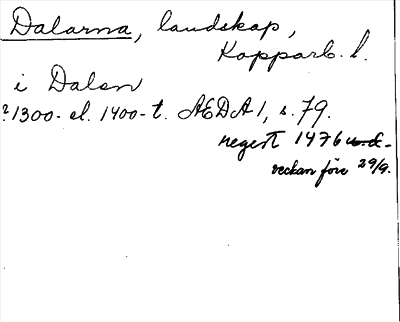 Dalarna, landskap,
Kopparb. l.
i Dalen
?1300- el. 1400-t. AEDA 1, s. 79.
regest 1476 u.d. -
veckan före 29/9.